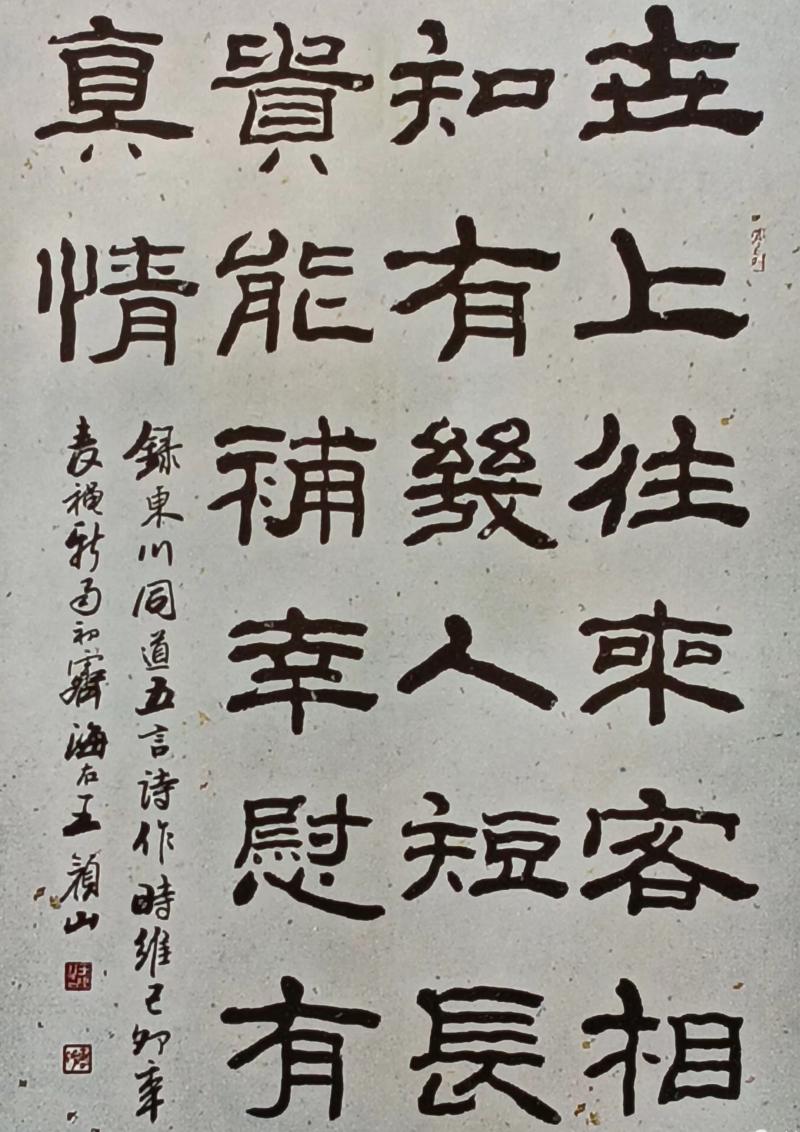 世上往來客相
知有幾人短長
貴能補幸慰有
真情
録東川同道五言詩作時維己卯年
春禎新雨初霽海右王頴山